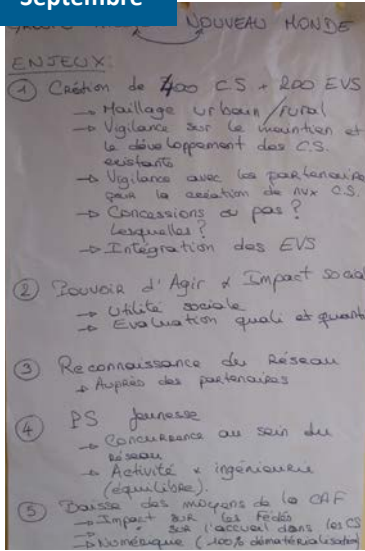 Septembre
NOUVEAU MONDE
ENJEUX:
① Création de 400 CS + 200 EVS
→ Maillage urbain/rural
→ Vigilance sur le maintien et
le développement des C.S.
existants
→ Vigilance avec les partenaires
pour la création de nvx C.S.
→ Concessions ou pas ?
Lesquelles ?
→ Intégration des EVS
② Pouvoir d'Agir & Impact social
→ Utilité sociale
→ Evaluation quali et quanti
③ Reconnaissance du Réseau
→ Auprès des partenaires
④ PS Jeunesse
→ Concurrence au sein du
réseau
→ Activité x ingénieurie
(équilibre).
⑤ Baisse des moyens de la CAF
→ Impact sur les Fédés
→ sur l'accueil dans les CS
→ Numérique (100% dématérialisation)